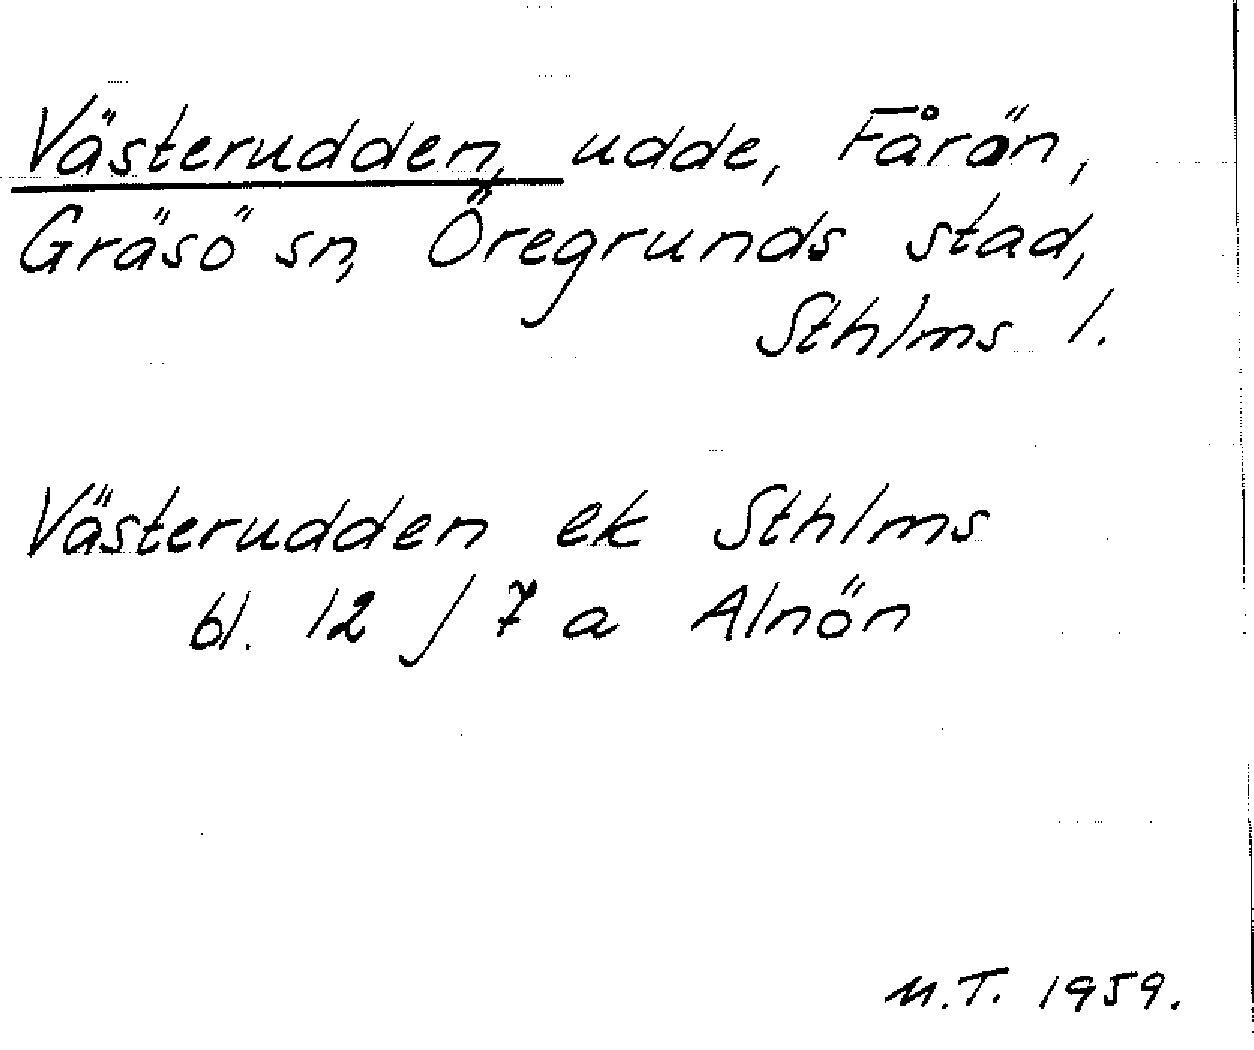 Västerudden, udde, Fårön,
Gräsö sn, Öregrunds stad,
Sthlms l.
Västerudden ek Sthlms
bl. 12 J 7 a Alnön
M.T. 1959.